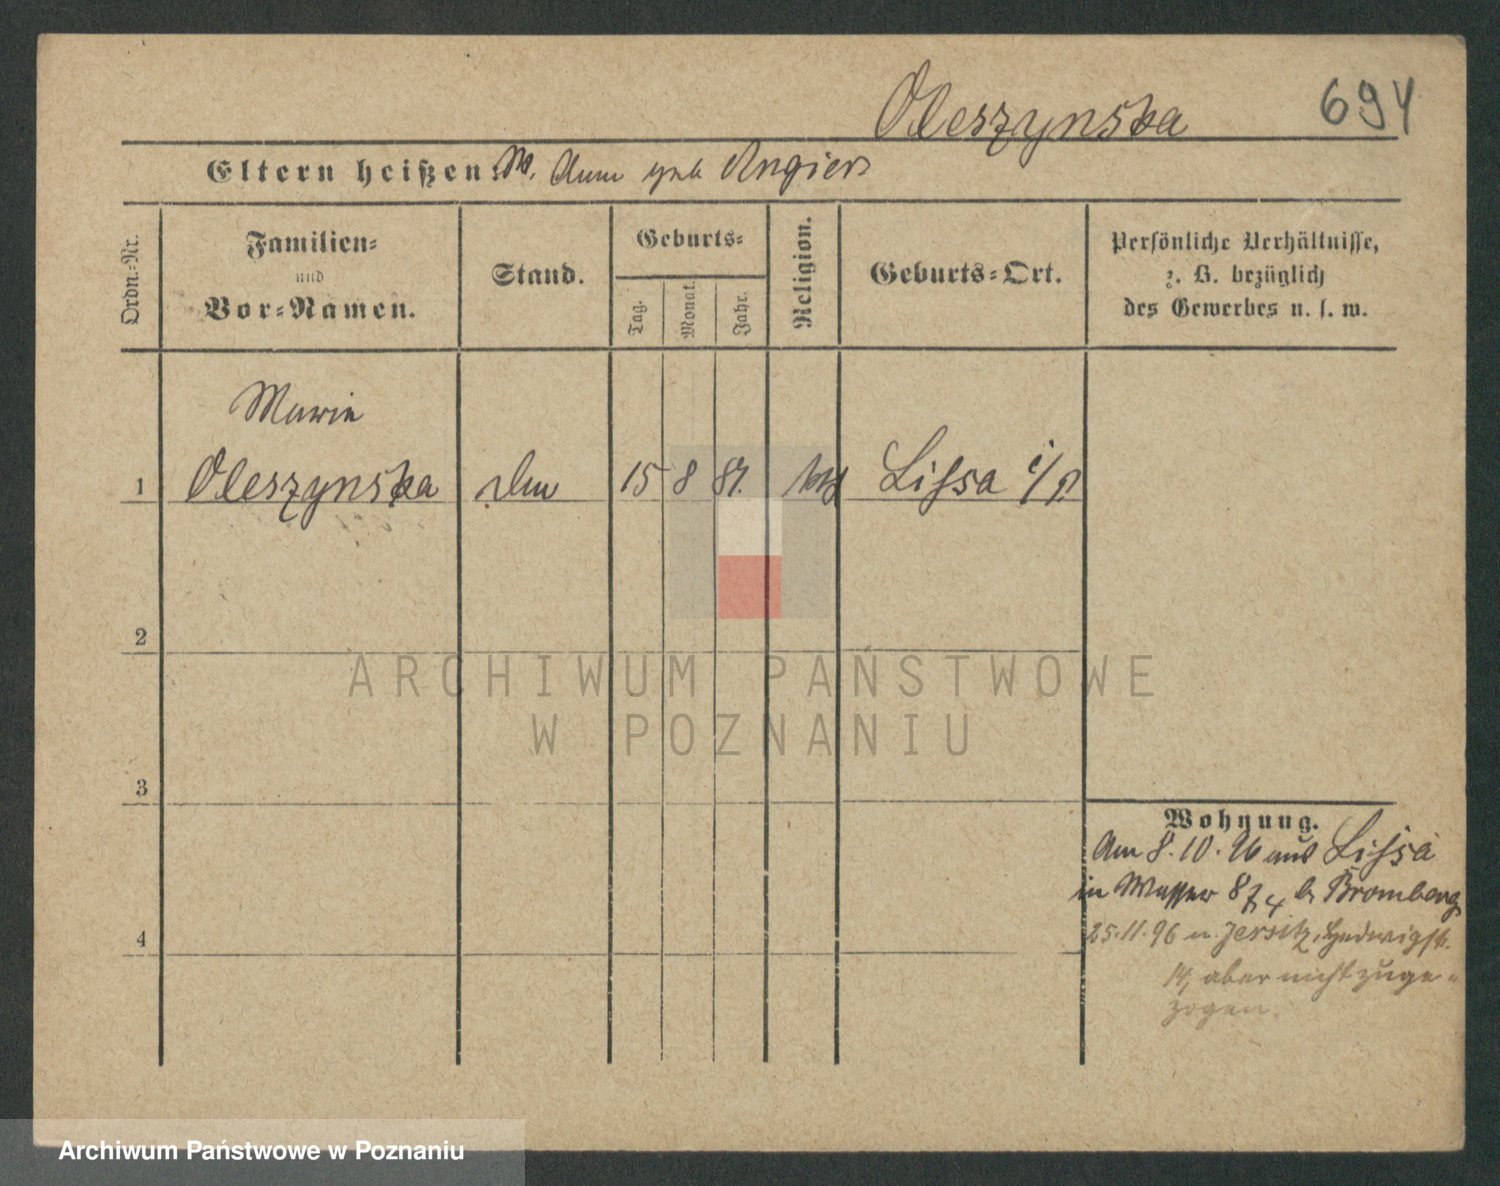 Oleszynska 694
Eltern heißen: M. Anna geb Angiers
Ordn.-Nr.
Familien-
und
Vor-Namen.
Stand.
Geburts-
Tag.
Monat.
Jahr.
Religion.
Geburts-Ort.
Persönliche Verhältnisse,
z. B. bezüglich
des Gewerbes u. s. w.
Marie
1 Oleszynska 15 8 81. kth Lissa i/P
2
3
4
Wohnung.
Am 8.10.96 aus Lissa
in Wasser 8 b Bromberg
25.11.96 n. Jersitz, Hedwigstr.
14, aber nicht zuge-
zogen.
ARCHIWUM PAŃSTWOWE
W POZNANIU
Archiwum Państwowe w Poznaniu